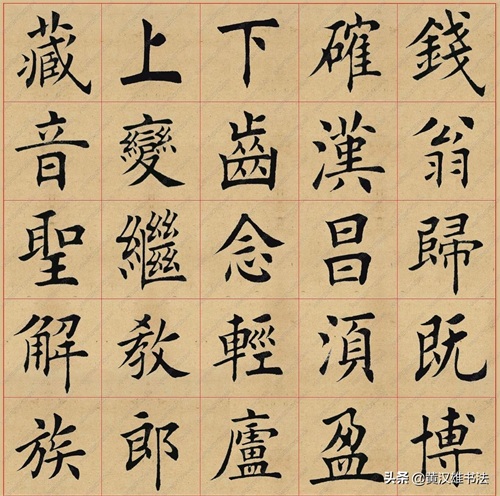 藏上下確錢
音變齒漢翁
聖繼念昌歸
解教輕湏既
族郎廬盈博
头条 @黄汉雄书法